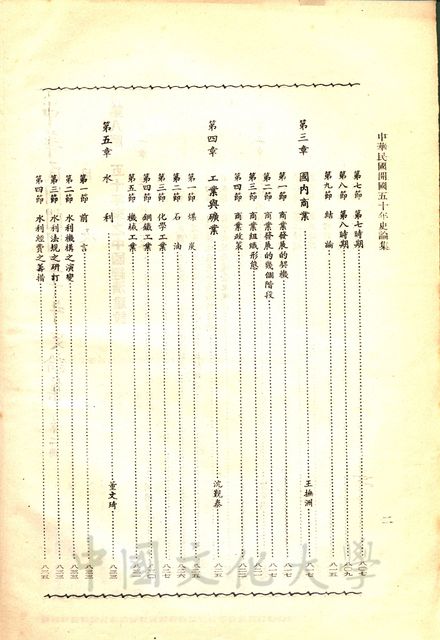 中華民國開國五十年史論集
二
第七節 第七時期 八〇七
第八節 第八時期 八〇九
第九節 結論 八一五
第三章 國內商業 王撫洲 八一七
第一節 商業發展的契機 八一七
第二節 商業發展的幾個階段
第三節 商業組織形態
第四節 商業政策
第四章 工業與礦業 沈覲泰 八二五
第一節 煤炭 八二五
第二節 石油 八二六
第三節 化學工業 八二七
第四節 鋼鐵工業
第五節 機械工業
第五章 水利 董文琦 八三三
第一節 前言 八三三
第二節 水利機構之演變 八三三
第三節 水利法規之研訂
第四節 水利經費之籌措 八三五
中國文化大學